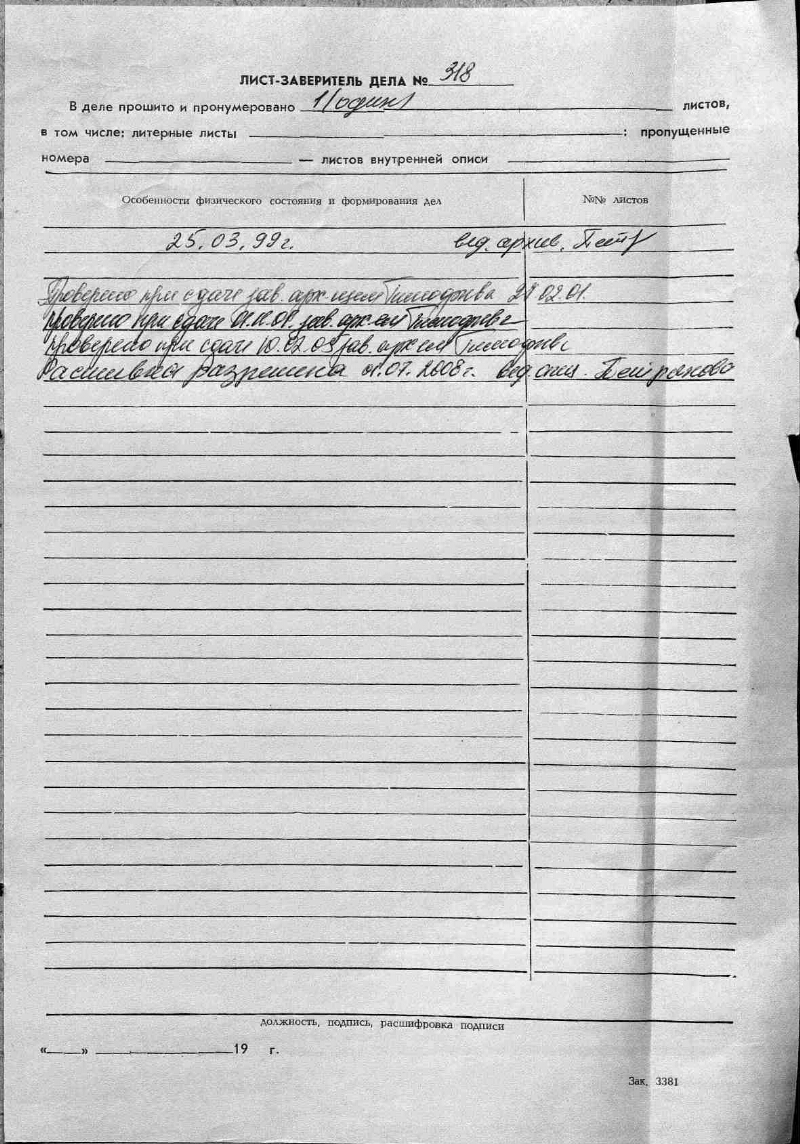 ЛИСТ-ЗАВЕРИТЕЛЬ ДЕЛА № 318
В деле прошито и пронумеровано 1/один/ листов,
в том числе: литерные листы : пропущенные
номера — листов внутренней описи
Особенности физического состояния и формирования дел №№ листов
25.03.99г. вед. архив.
Проверено при сдаче зав. 02.01.
проверено при сдаче зав.
проверено при сдаче зав.
Расшивка разрешена 2008г. вед. Петракова
должность, подпись, расшифровка подписи
« » 19 г.
Зак. 3381